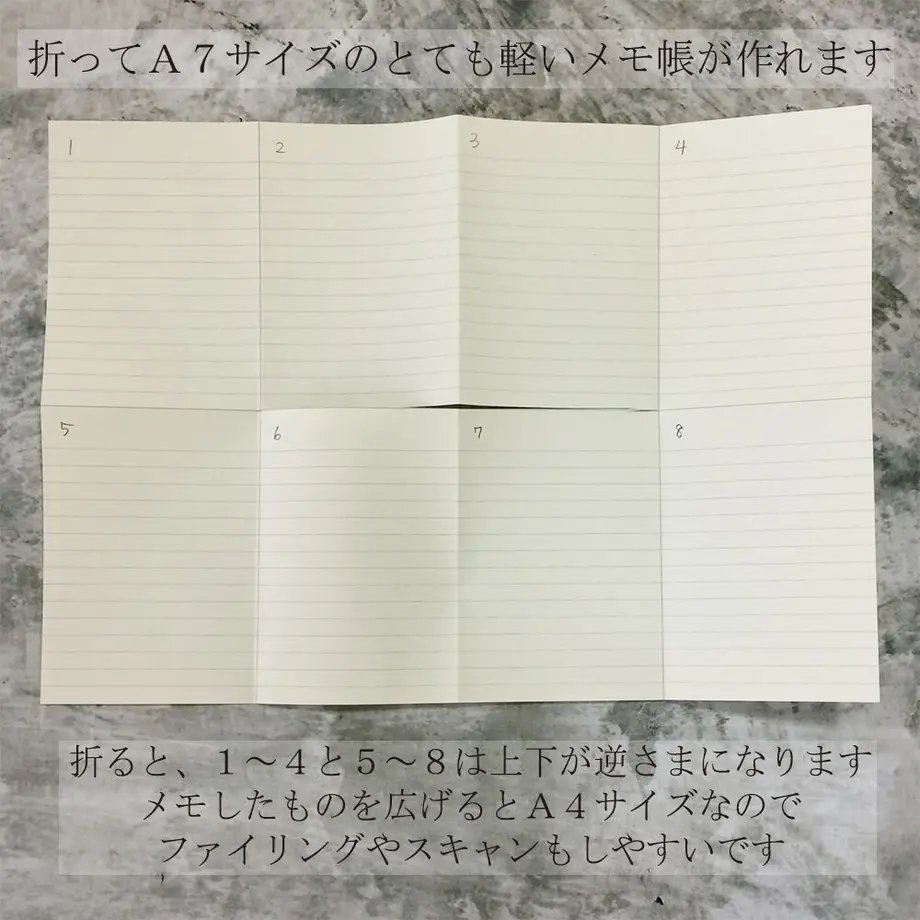 折ってＡ７サイズのとても軽いメモ帳が作れます
1 2 3 4
5 6 7 8
折ると、１～４と５～８は上下が逆さまになります
メモしたものを広げるとＡ４サイズなので
ファイリングやスキャンもしやすいです